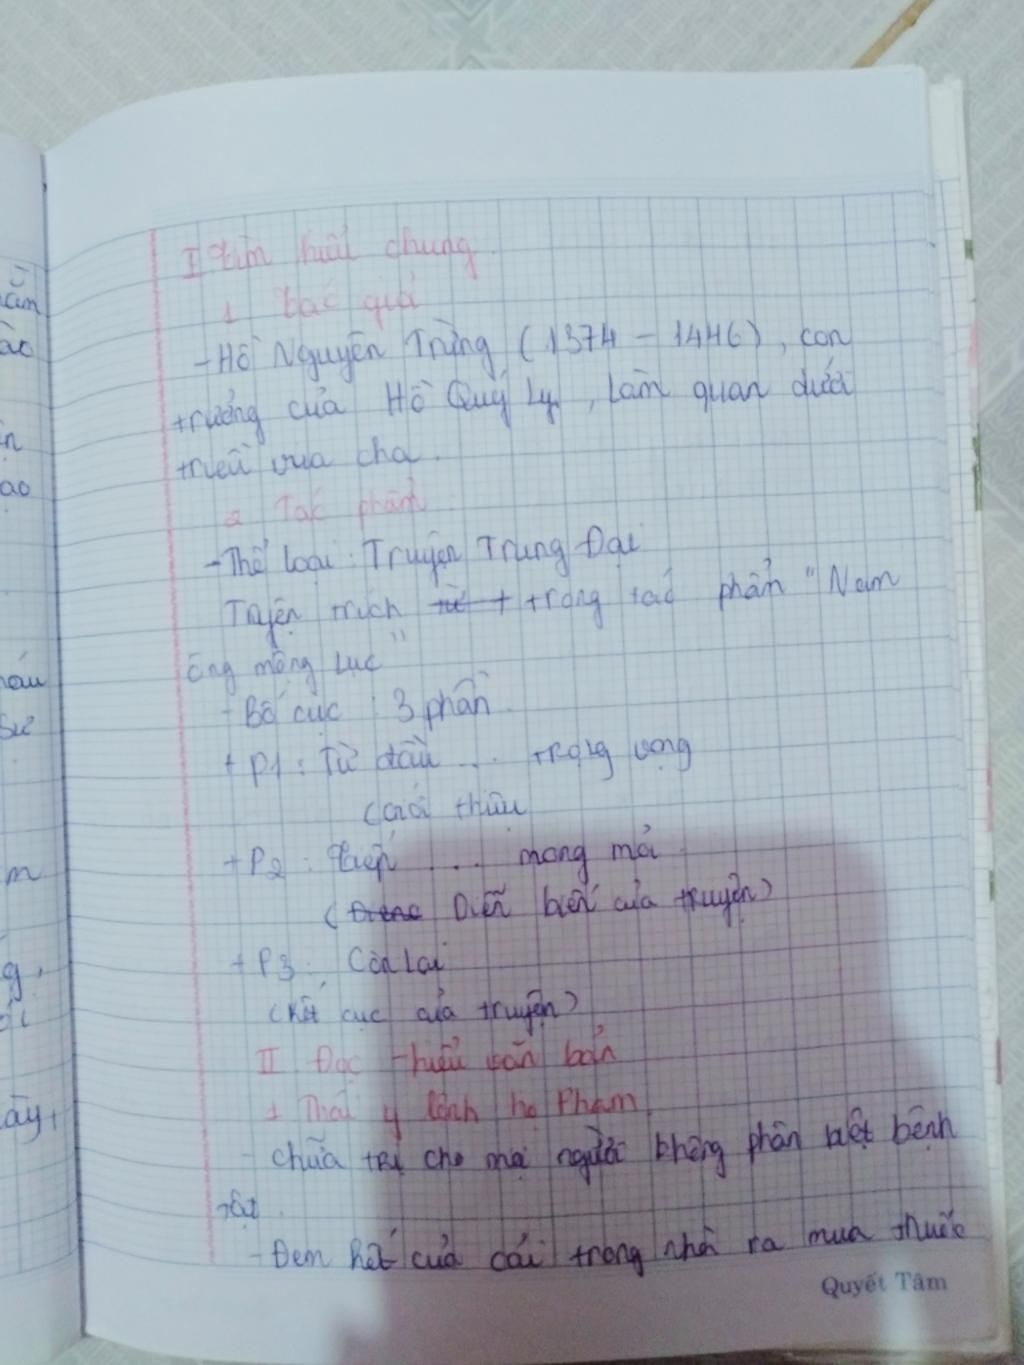 I Tìm hiểu chung
1 Tác giả
- Hồ Nguyên Trừng (1374 - 1446), con
trưởng của Hồ Quý Ly, làm quan dưới
triều vua cha.
2 Tác phẩm
- Thể loại: Truyện Trung Đại
Truyện trích trong tác phẩn "Nam
ông mộng lục"
- Bố cục : 3 phần.
+ P1: Từ đầu ... trọng vọng
(Giới thiệu
+ P2 : Tiếp ... mong mỏi
( Diễn biến của truyện)
+ P3: Còn lại
(Kết cục của truyện)
II Đọc - hiểu văn bản
1 Thái y lệnh họ Phạm
- Chữa trị cho mọi người không phân biệt bệnh
tật.
- Đem hết của cải trong nhà ra mua thuốc
Quyết Tâm
ần
ào
ạo
sư
m
g,
ầy,